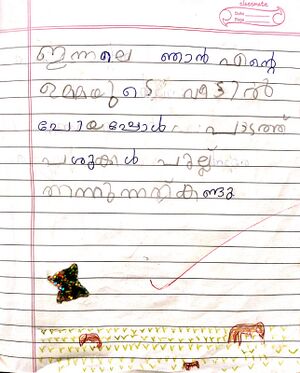 classmate
Date
Page
ഇന്നലെ ഞാൻ എന്റെ
ഉമ്മയുടെ വീട്ടിൽ
പോയപ്പോൾ പാടത്ത്
പശുക്കൾ പുല്ല്
തിന്നുന്നത് കണ്ടു